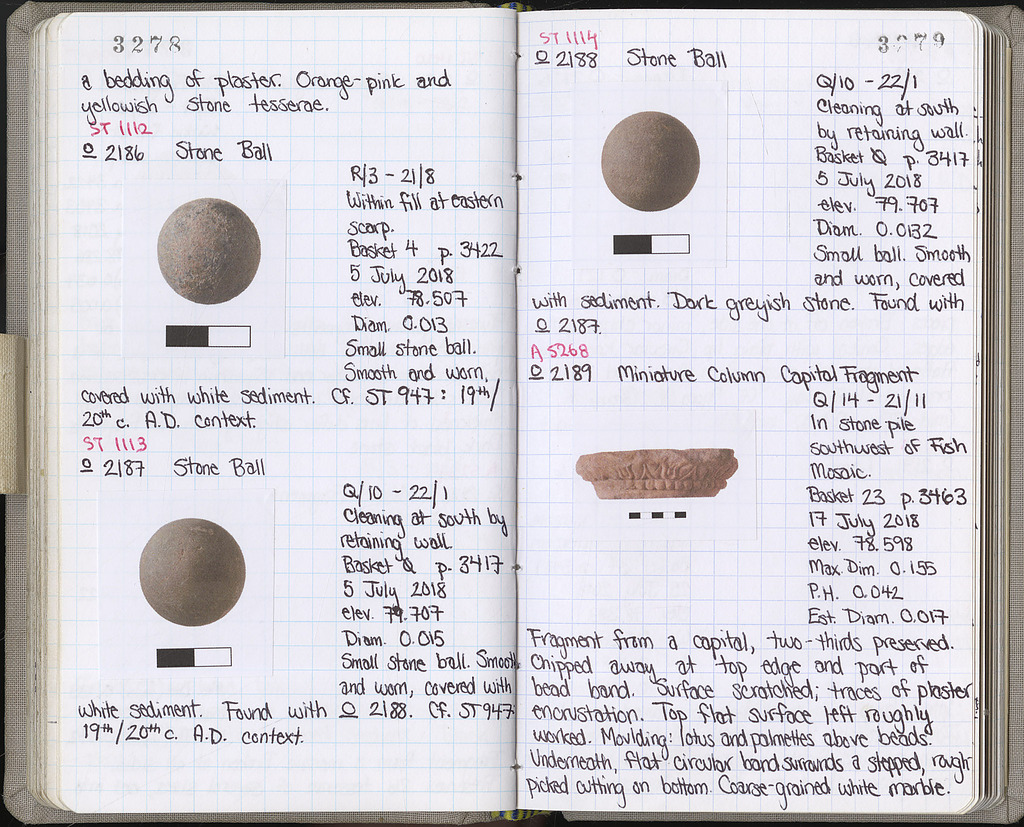 3278
a bedding of plaster. Orange-pink and
yellowish stone tesserae.
ST 1112
O 2186 Stone Ball
R/3 - 21/8
Within fill at eastern
scarp.
Basket 4 p. 3422
5 July 2018
elev. 78.507
Diam. 0.013
Small stone ball.
Smooth and worn,
covered with white sediment. Cf. ST 947: 19th/
20th c. A.D. context.
ST 1113
O 2187 Stone Ball
Q/10 - 22/1
Cleaning at south by
retaining wall.
Basket Q p. 3417
5 July 2018
elev. 79.707
Diam. 0.015
Small stone ball. Smooth
and worn, covered with
white sediment. Found with O 2188. Cf. ST 947
19th/20th c. A.D. context.
3279
ST 1114
O 2188 Stone Ball
Q/10 - 22/1
Cleaning at south
by retaining wall.
Basket Q p. 3417
5 July 2018
elev. 79.707
Diam. 0.0132
Small ball. Smooth
and worn, covered
with sediment. Dark greyish stone. Found with
O 2187.
A 5268
O 2189 Miniature Column Capital Fragment
Q/14 - 21/11
In stone pile
southwest of Fish
Mosaic.
Basket 23 p. 3463
17 July 2018
elev. 78.598
Max. Dim. 0.155
P.H. 0.042
Est. Diam. 0.017
Fragment from a capital, two-thirds preserved.
Chipped away at top edge and part of
bead band. Surface scratched; traces of plaster
encrustation. Top flat surface left roughly
worked. Moulding: lotus and palmettes above beads.
Underneath, flat circular band surrounds a stepped, rough
picked cutting on bottom. Coarse-grained white marble.